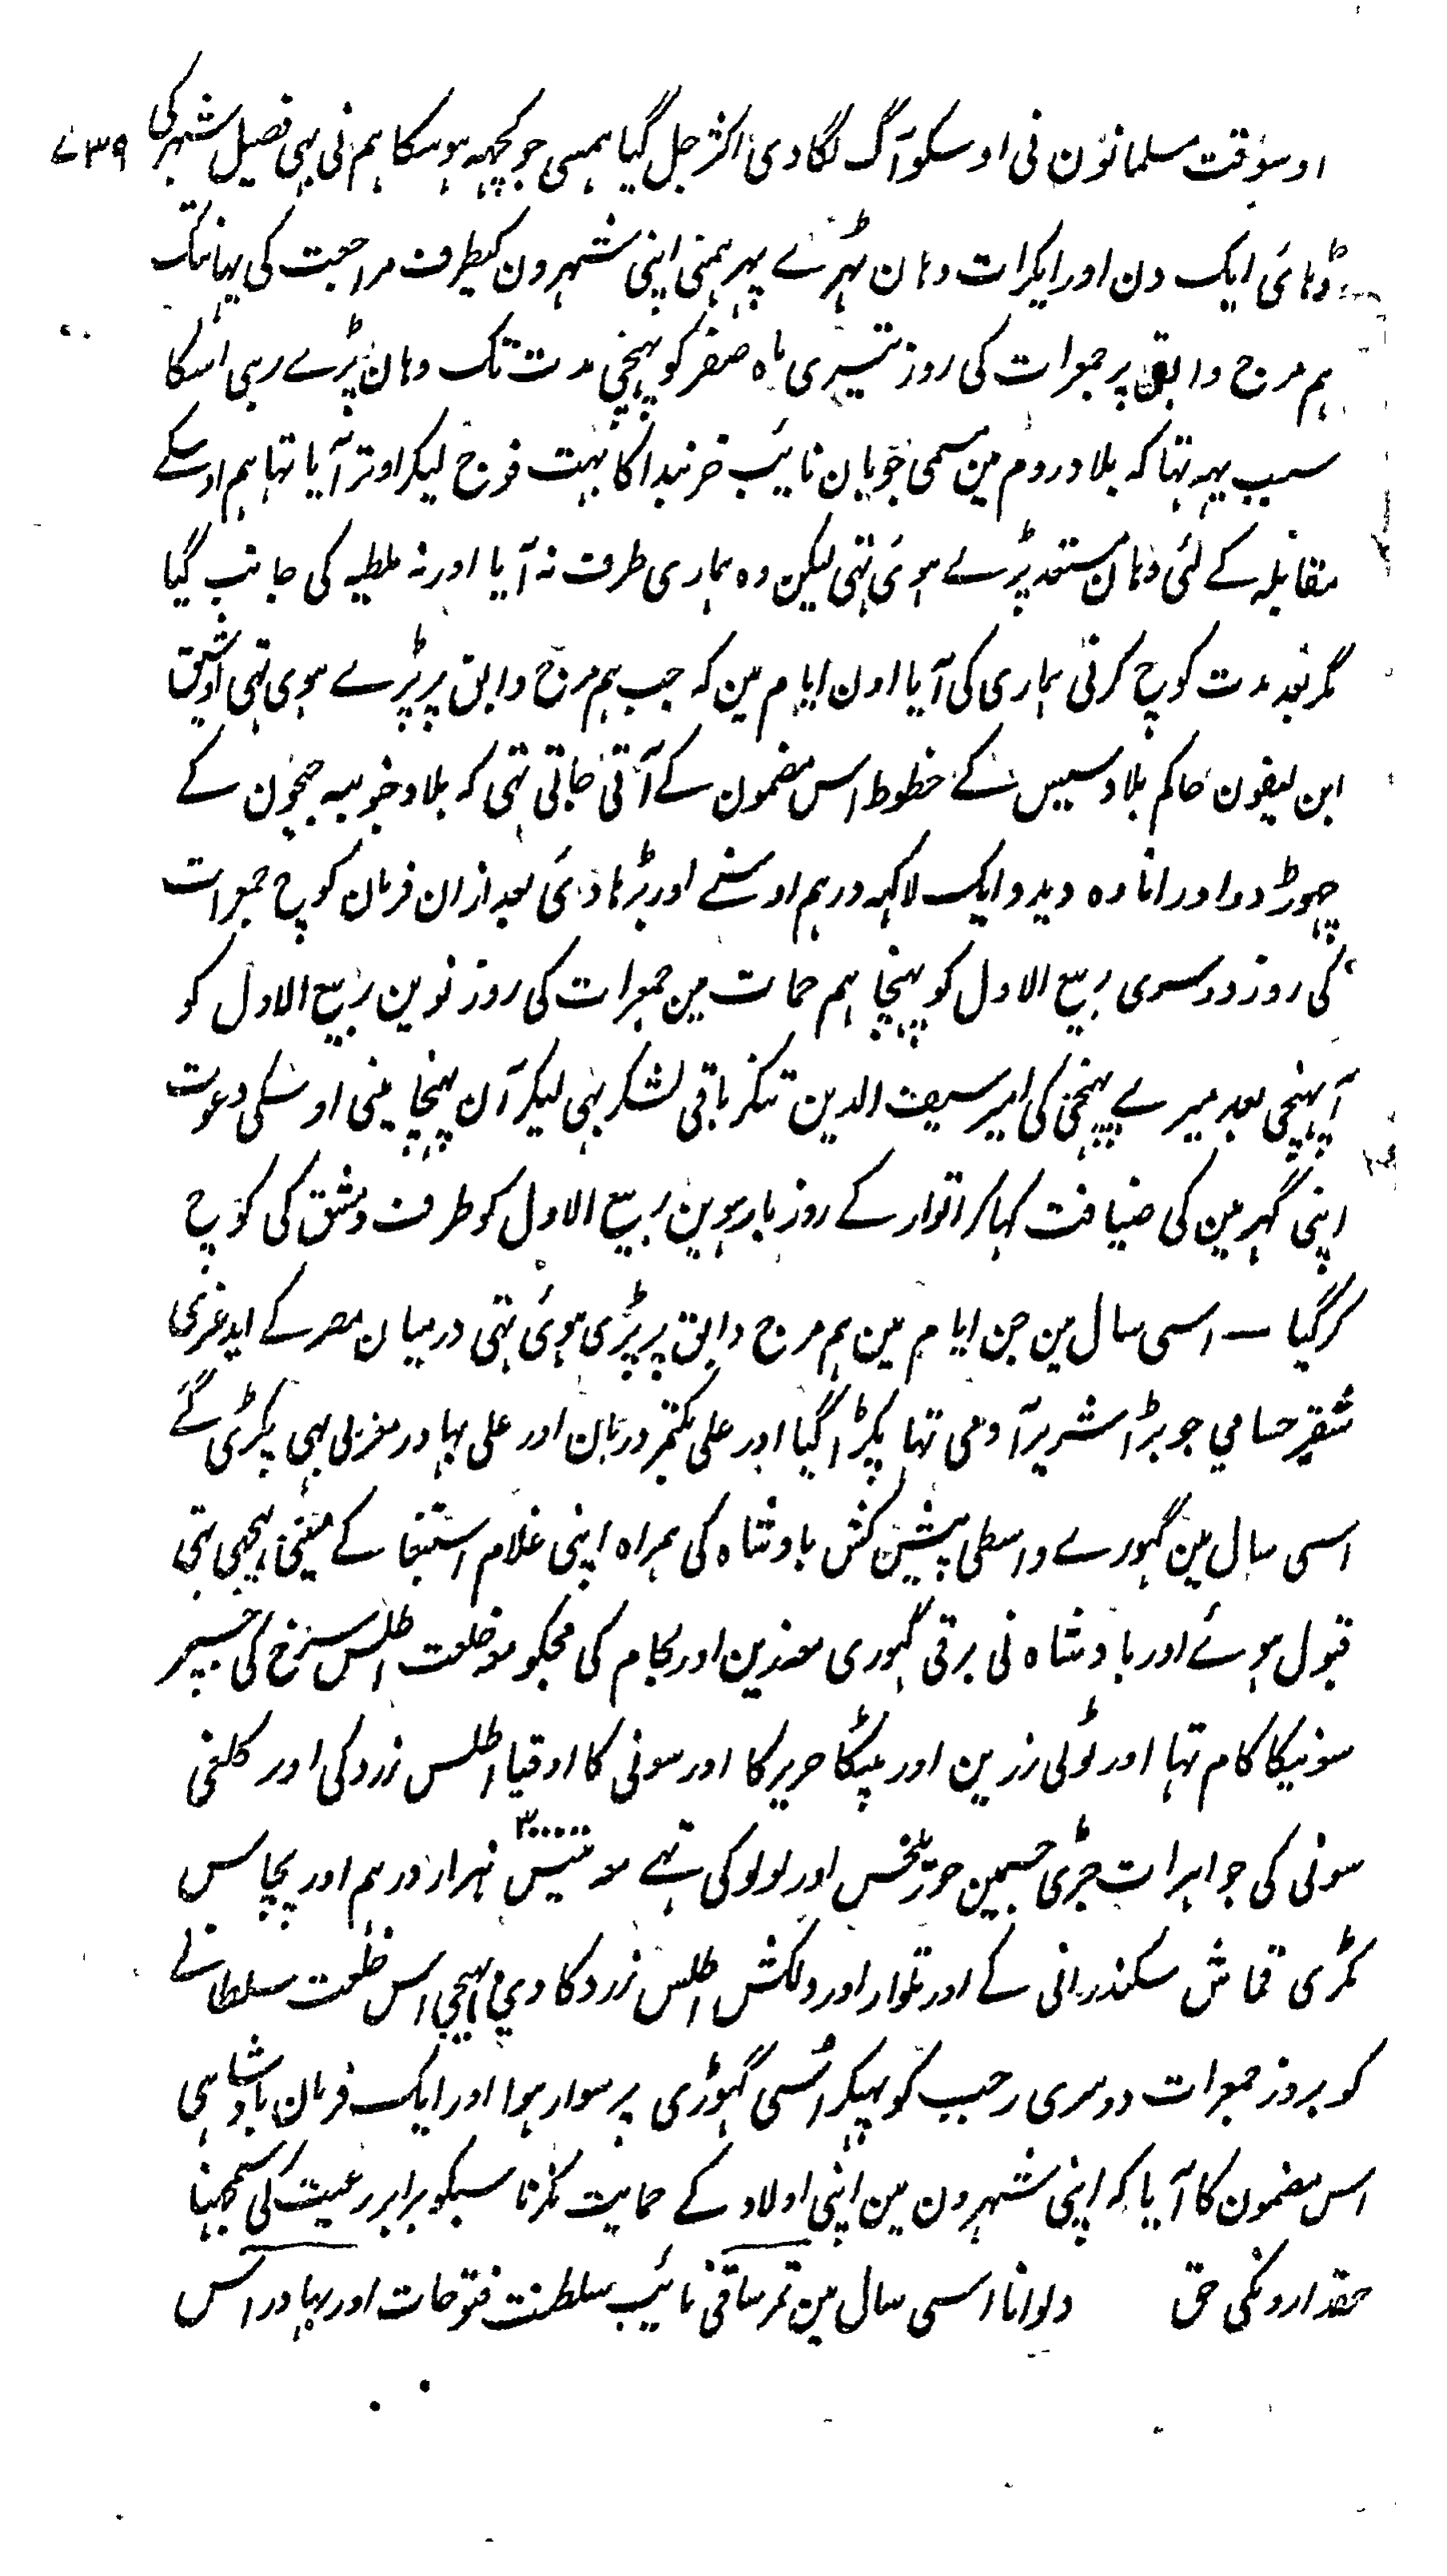 اوسوقت مسلمانون نی اوسکو آگ لگا دی اکثر جل گیا ہمسی جو کچہہ ہو سکا ہم نی بہی فصیل شہر کی ۷۳۹
ڈہائی ایک دن اور ایکرات وہان ٹہرے پہر ہمنی اپنی شہرون کیطرف مراجعت کی یہانتک
ہم مرج دابق پر جمعرات کی روز تیسری ماہ صفر کو پہنچی مدت تک وہان پڑے رہی اسکا
سبب یہہ تہا کہ بلاد روم مین مسمی جوبان نائب خربندا کا بہت فوج لیکر اوتر آیا تہا ہم اوسکے
مقابلہ کے لئی وہان مستعد پڑے ہوئی تہی لیکن وہ ہماری طرف نہ آیا اور نہ ملطیہ کی جانب گیا
مگر بعد مدت کوچ کرنی ہماری کی آیا اون ایام مین کہ جب ہم مرج دابق پر پڑے ہوی تہی اوشین
ابن لیفون حاکم بلاد سیس کے خطوط اس مضمون کے آتی جاتی تہی کہ بلاد جنوبیہ جیحون کے
چہوڑ دو اور اناوہ دیدو ایک لاکہہ درہم اوسنے اور بڑہا دئی بعد ازان فرمان کوچ جمعرات
کی روز دوسری ربیع الاول کو پہنچا ہم حمات مین جمعرات کی روز نوین ربیع الاول کو
آپہنچی بعد میرے پہنچی کی امیر سیف الدین تنکز باقی لشکر بہی لیکر آن پہنچا مینی اوسکی دعوت
اپنی گہر مین کی ضیافت کہا کر اتوار کے روز بارہوین ربیع الاول کو طرف دمشق کی کوچ
کر گیا — اسی سال مین جن ایام مین ہم مرج دابق پر پڑی ہوئی تہی درمیان مصر کے ایدغری
شقیر حسامي جو بڑا شریر آدمی تہا پکڑا گیا اور علی بکتمر دربان اور علی بہادر مغربی بہی پکڑی گے
اسی سال مین گہورے واسطی پیشکش بادشاہ کی ہمراہ اپنی غلام استبغا کے مینی بہیجی تہی
قبول ہوئے اور بادشاہ نی برقی گہوری معہ زین اور لجام کی مجکو معہ خلعت اطلس سرخ کی جسپر
سونیکا کام تہا اور ٹوپی زرین اور پٹکا حریر کا اور سونی کا اور قبا اطلس زرد کی اور کلغی
سونی کی جواہرات جڑی جسمین بلخش اور لولو کی تہے معہ تیس ۳۰۰۰۰ ہزار درہم اور پچاس
ٹکڑی قماش سکندرانی کے اور تلوار اور دلکش اطلس زرد کا دیي بہیجی اس خلعت سلطانے
کو بروز جمعرات دوسری رجب کو پہنکر اسی گہوڑی پر سوار ہوا اور ایک فرمان بادشاہی
اس مضمون کا آیا کہ اپنی شہرون مین اپنی اولاد کے حمایت نکرنا سبکو برابر رعیت کی سمجہنا
حقدارونکی حق دلوانا اسی سال مین تمر ساقی نائب سلطنت فتوحات اور بہادر اس